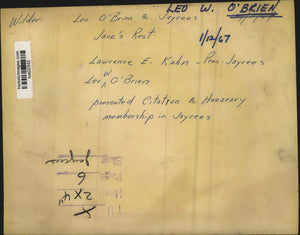 LEO W. O'BRIEN
Wilder
Leo O'Brien & Jaycees
Jack's Rest.
1/12/67
Lawrence E. Kahn - Pres. Jaycees
Leo W O'Brien
presented Citation & Honarary
membership in Jaycees
Slug Jaycees
Page 6
2 x 4"